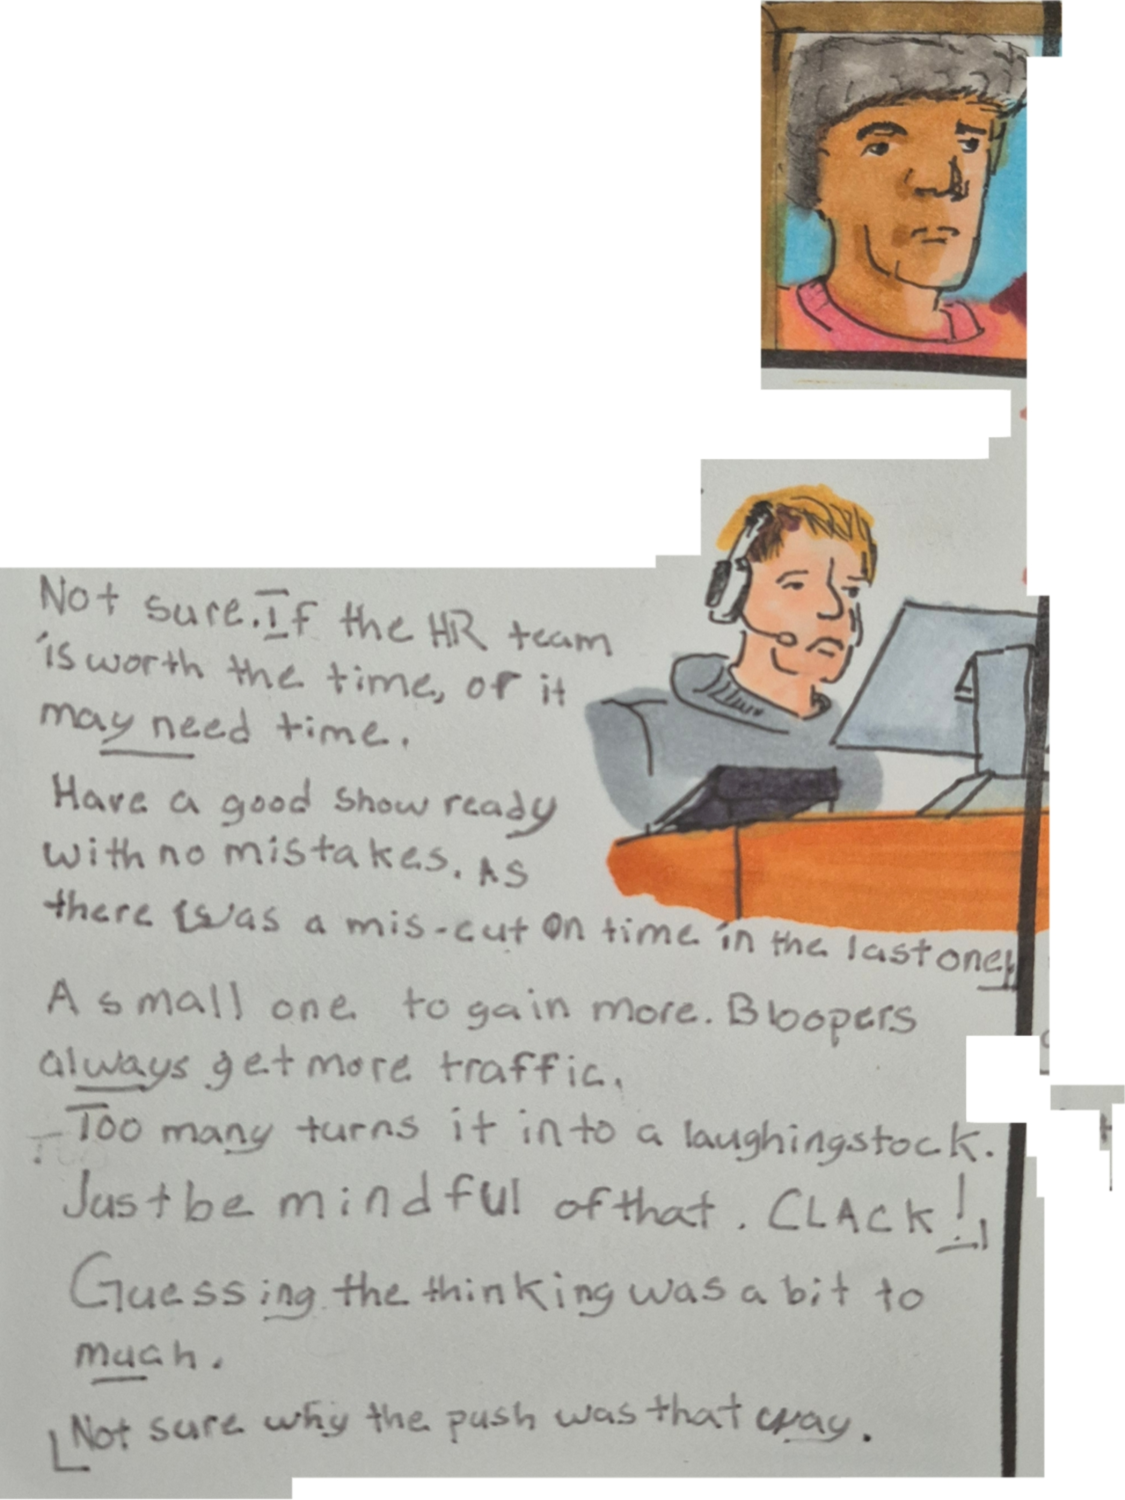 Not sure. If the HR team
is worth the time, or it
may need time.
Have a good show ready
with no mistakes. As
there was a mis-cut on time in the last one!
A small one to gain more. Bloopers
always get more traffic.
Too many turns it into a laughingstock.
Just be mindful of that. CLACK!
Guessing the thinking was a bit to
much.
Not sure why the push was that way.